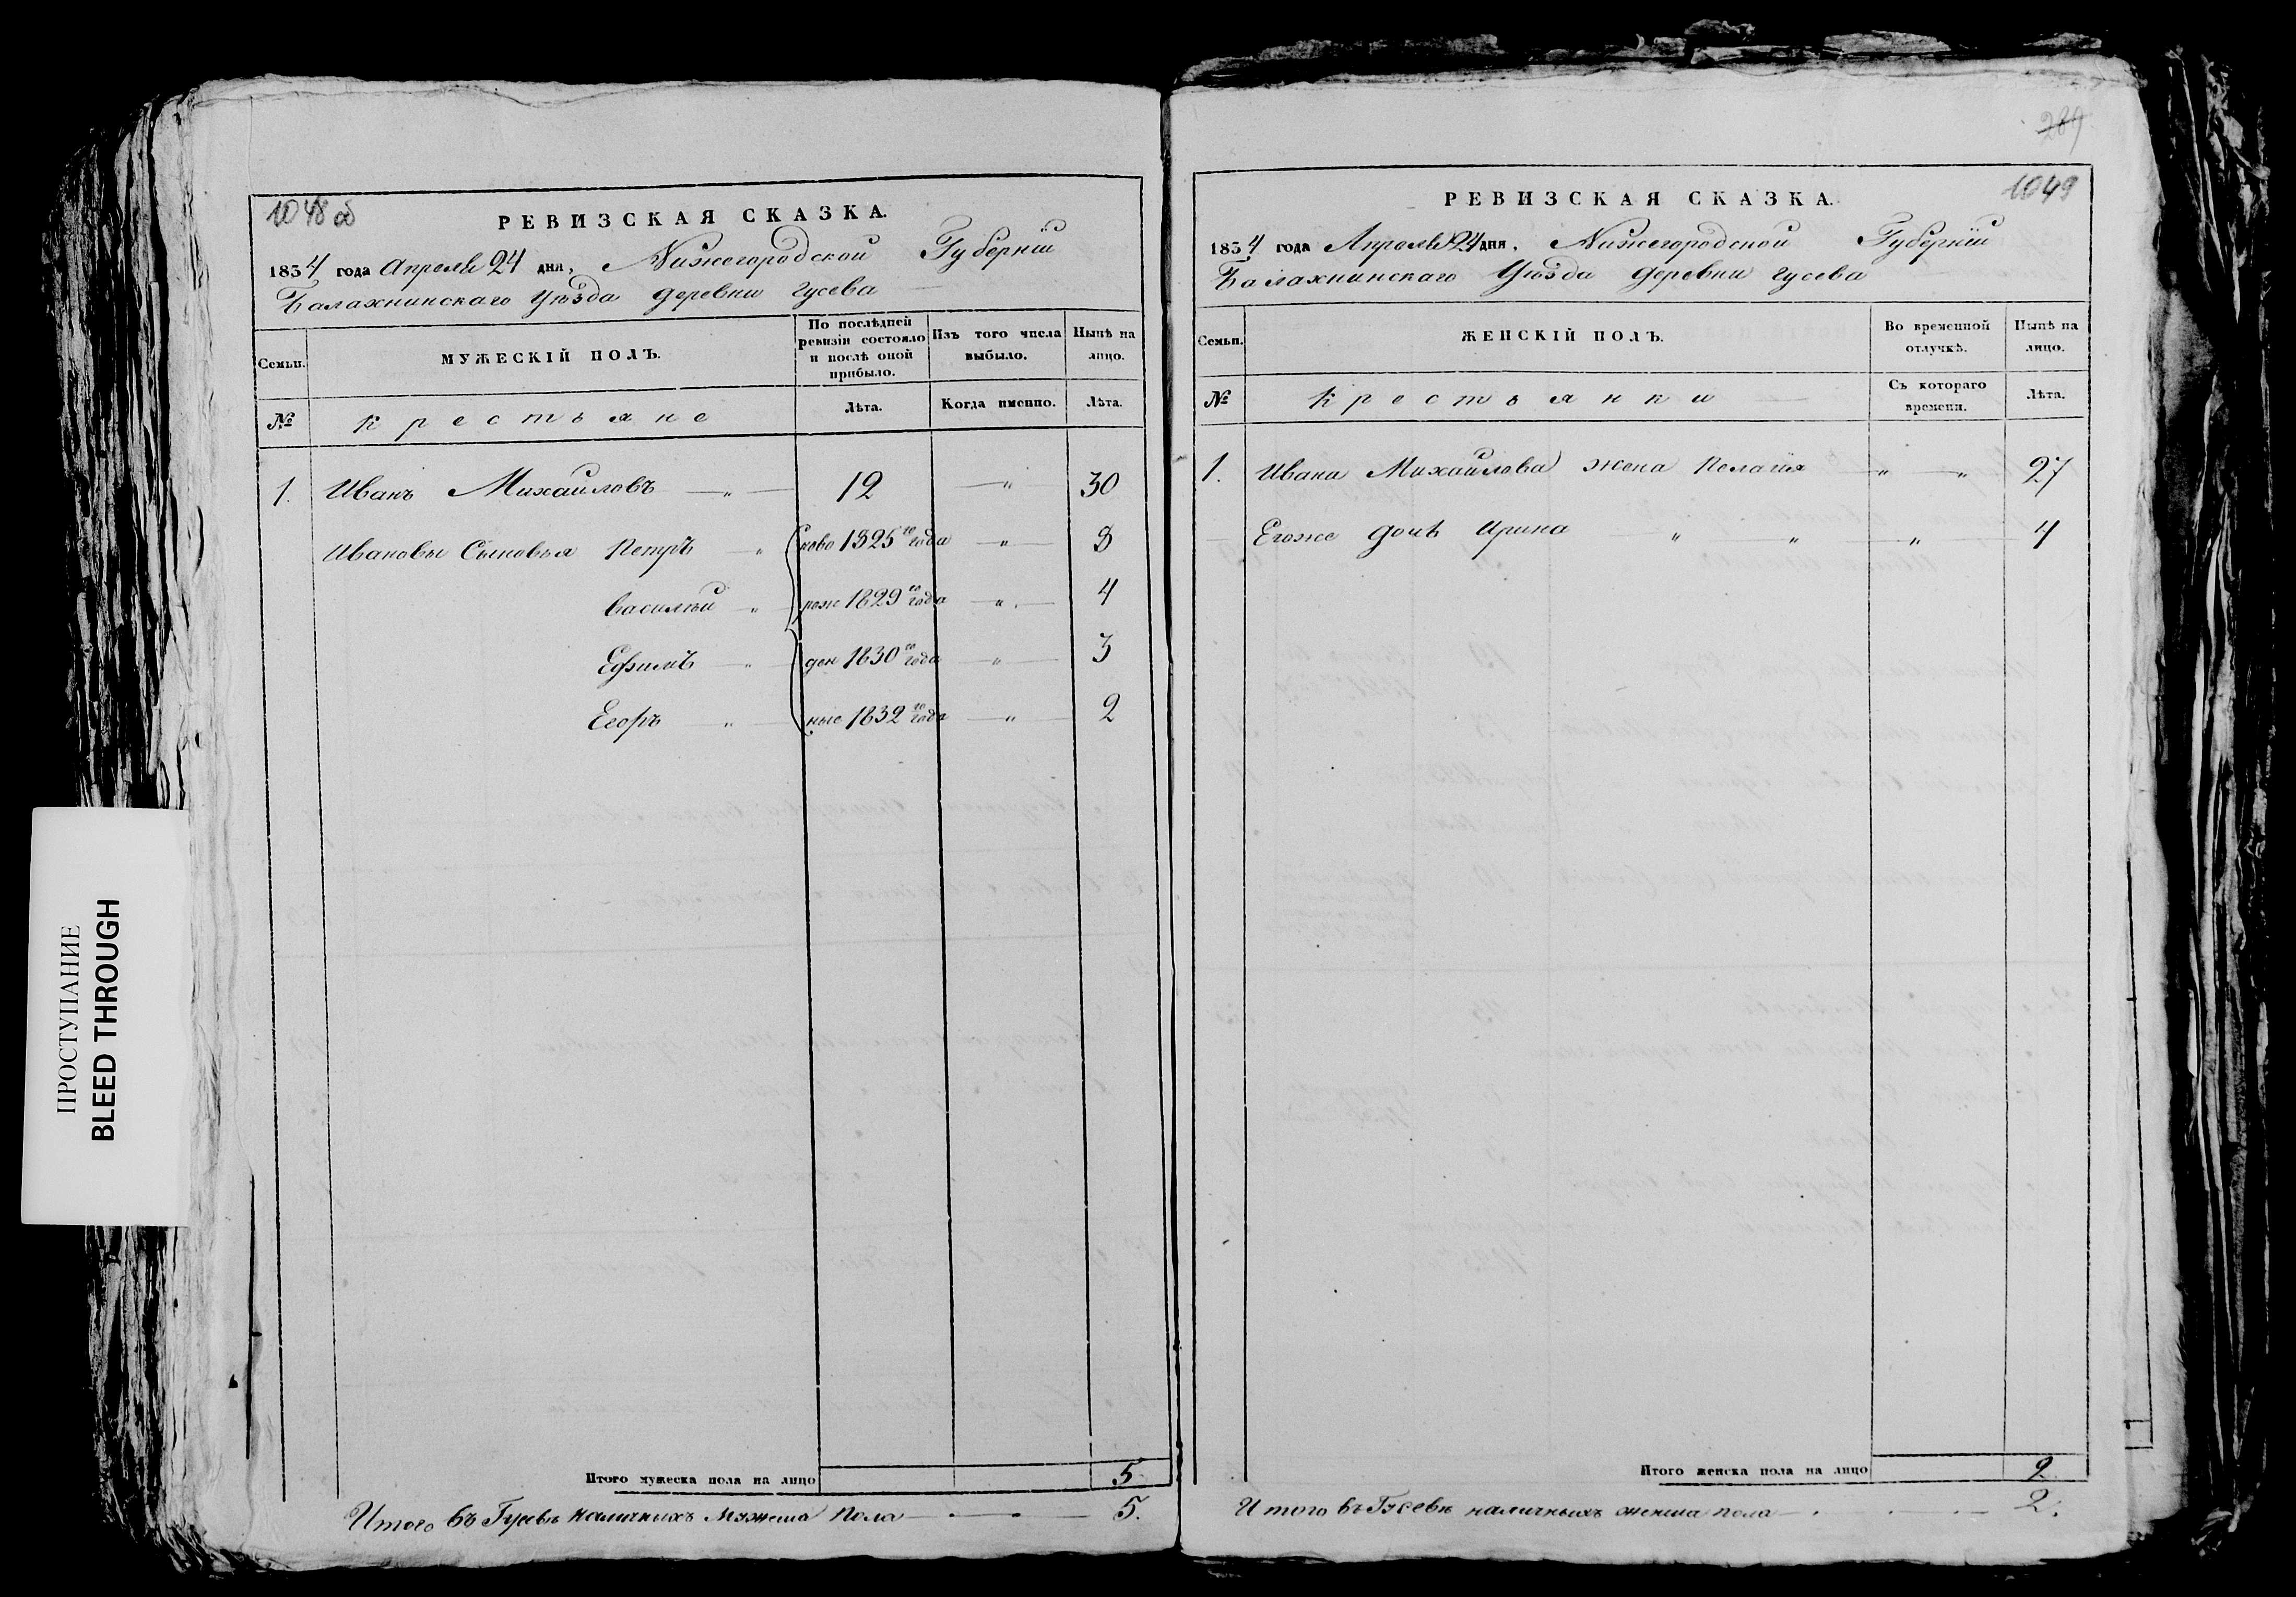 1048 об
РЕВИЗСКАЯ СКАЗКА.
1834 года Апреля 24 дня, Нижегородской Губернїи
Балахнинскаго Уѣзда деревни Гусева
Семьи.
МУЖЕСКІЙ ПОЛЪ.
По послѣдней ревизіи состояло и послѣ оной прибыло.
Изъ того числа выбыло.
Нынѣ на лицо.
№
Крестьяне
Лѣта.
Когда именно.
Лѣта.
1. Иванъ Михайловъ — „ — 12 — „ 30
Ивановы Сыновья Петръ „ ново 1825го года — „ — 8
Василей „ рож 1829го года — „ — 4
Ефимъ „ ден 1830го года — „ — 3
Егоръ „ ные 1832го года — „ 2
Итого мужеска пола на лицо 5
Итого въ Гусевѣ наличныхъ Мужеска пола 5.
ПРОСТУПАНИЕ
BLEED THROUGH
289
1049
РЕВИЗСКАЯ СКАЗКА.
1834 года Апреля 24 дня, Нижегородской Губернїи
Балахнинскаго Уѣзда деревни Гусева
Семьи.
ЖЕНСКІЙ ПОЛЪ.
Во временной отлучкѣ.
Нынѣ на лицо.
№
Крестьянки
Съ котораго времени.
Лѣта.
1. Ивана Михайлова жена Пелагїя „ „ 27
Егоже дочь Ирина „ „ „ 4
Итого женска пола на лицо 2
Итого въ Гусевѣ наличныхъ женска пола 2.